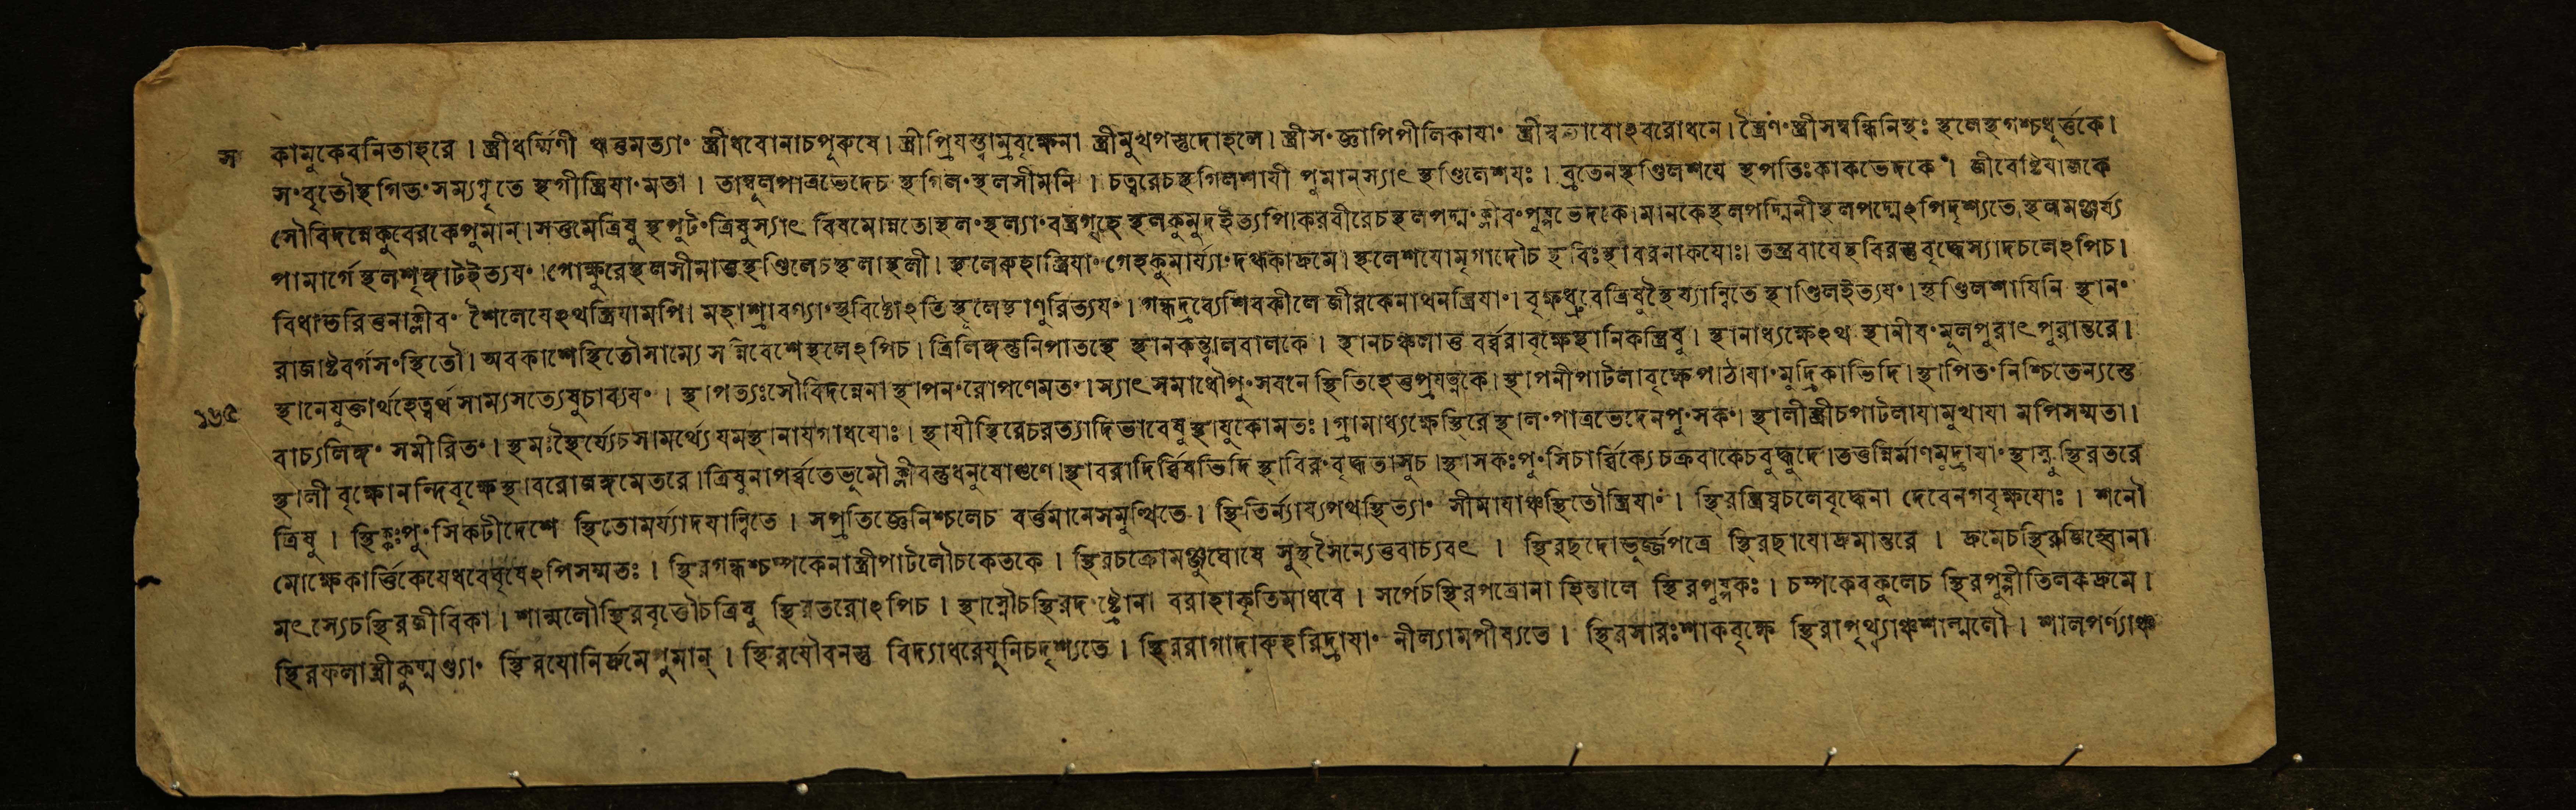 স কামুকেবনিতাহরে । স্ত্রীধর্ম্মিণী ঋতুমত্যাং স্ত্রীধবোনাচপুরুষে। স্ত্রীপ্রিযস্ত্বাম্রবৃক্ষেনা স্ত্রীমুখপস্তুদোহলে। স্ত্রীসংজ্ঞাপিপীলিকাযাং স্ত্রীস্বভাবোঽবরোধনে। স্ত্রৈণং স্ত্রীসম্বন্ধিনিস্থঃ স্থলেস্থগশ্চধূর্ত্তকে।
সংবৃতৌস্থগিতং সম্যগ্বৃতে স্থগীস্ত্রিযাং মতা । তাম্বূলপাত্রভেদেচ স্থগিলং স্থলসীমনি । চত্বরেচস্থগিলশাযী পুমান্‌স্যাৎ স্থণ্ডিলেশযঃ । ব্রতেনস্থণ্ডিলশযে স্থপতিঃকাকভেদকে । জীবেষ্টিযাজকে
সৌবিদল্লেকুবেরকেপুমান্‌।সত্তমেত্রিষু স্থপুটংত্রিষুস্যাৎ বিষমোন্নতেস্থলং স্থল্যাং বস্ত্রগৃহে স্থলকুমুদইত্যপি।করবীরেচস্থলপদ্মং ক্লীবংপুষ্পভেদকে।মানকেস্থলপদ্মিনীস্থলপদ্মেঽপিদৃশ্যতে স্থলমঞ্জর্য্য
পামার্গে স্থলশৃঙ্গাটইত্যযং।গোক্ষুরেস্থলসীমাতুস্থণ্ডিলেচস্থলাস্থলী। স্থলেরুহাস্ত্রিযাং গেহকুমার্য্যাং দগ্ধকাদ্রুমে। স্থলেশযোমৃগাদৌচ স্থবিঃস্থাবরনাকযোঃ। তন্ত্রবাযেস্থবিরস্তুবৃদ্ধেস্যাদচলেঽপিচ।
বিধাতরিতুনাক্লীবং শৈলেযেঽথস্ত্রিযামপি। মহাশ্রাবণ্যাংস্থবিষ্ঠোঽতি স্থূলেস্থাণুরিত্যযং। গন্ধদ্রব্যেশিবকীলে জীরকেনাথনস্ত্রিযাং। বৃক্ষধ্রুবেত্রিষুস্থৈর্য্যান্বিতে স্থাণ্ডিলইত্যযং।স্থণ্ডিলশাযিনি স্থানং
রাজাষ্টবর্গসংস্থিতৌ। অবকাশেস্থিতৌসাম্যে সন্নিবেশেস্থলেঽপিচ। ত্রিলিঙ্গন্তুনিপাতস্থে স্থানকন্ত্বালবালকে । স্থানচঞ্চলাতু বর্ব্বরাবৃক্ষেস্থানিকস্ত্রিষু। স্থানাধ্যক্ষেঽথ স্থানীযং মূলপুরাৎ পুরান্তরে।
১৬৫ স্থানেযুক্তার্থহেত্বর্থ সাম্যসত্যেষুচাব্যযং । স্থাপত্যঃসৌবিদল্লেনা স্থাপনং রোপণেমতং। স্যাৎ সমাধৌপুংসবনে স্থিতিহেতুপ্রযত্নকে। স্থাপনীপাটলাবৃক্ষেপাঠাযাং মুদ্রিকাভিদি। স্থাপিতং নিশ্চিতেন্যস্তে
বাচ্যলিঙ্গং সমীরিতং। স্থমঃস্থৈর্য্যেচসামর্থ্যে যমস্থানাযগাধযোঃ। স্থাযীস্থিরেচরত্যাদিভাবেষুস্থাযুকোমতঃ। গ্রামাধ্যক্ষেস্থিরে স্থালংপাত্রভেদেনপুংসকং। স্থালীস্ত্রীচপাটলাযামুথাযা মপিসম্মতা।
স্থালী বৃক্ষোনন্দিবৃক্ষেস্থাবরোজঙ্গমেতরে।ত্রিষুনাপর্ব্বতেভূমৌক্লীবন্তুধনুষোগুণে।স্থাবরাদির্ব্বিষভিদি স্থাবিরংবৃদ্ধতাসুচ।স্থাসকঃপুংসিচার্ব্বিক্যেচক্রবাকেচবুদ্বুদে।তত্তন্নির্মাণমুদ্রাযাংস্থাস্নুস্থিরতরে
ত্রিষু । স্থিকঃপুংসিকটীদেশে স্থিতোমর্য্যাদযান্বিতে । সপ্রতিজ্ঞেনিশ্চলেচ বর্ত্তমানেসমুত্থিতে । স্থিতির্ন্যায্যপথস্থিত্যাং সীমাযাঞ্চস্থিতৌস্ত্রিযাং । স্থিরস্ত্রিষ্বচলেবৃদ্ধেনা দেবেনগবৃক্ষযোঃ । শনৌ
মোক্ষেকার্ত্তিকেযেধবেবৃষেঽপিসম্মতঃ । স্থিরগন্ধশ্চম্পকেনাস্ত্রীপাটলৌচকেতকে । স্থিরচক্রোমঞ্জুঘোষে সুস্থসৈন্যেতুবাচ্যবৎ । স্থিরছদোভূর্জ্জপত্রে স্থিরছাযোদ্রুমান্তরে । দ্রুমেচস্থিরজিহ্বোনা
মৎস্যেচস্থিরজীবিকা। শাল্মলৌস্থিরবৃতৌচত্রিষু স্থিরতরোঽপিচ । স্থাস্নৌচস্থিরদংষ্ট্রোনা বরাহাকৃতিমাধবে । সর্পেচস্থিরপত্রোনা হিন্তালে স্থিরপুষ্পকঃ । চম্পকেবকুলেচ স্থিরপুষ্পীতিলকদ্রুমে।
স্থিরফলাস্ত্রীকুষ্মাণ্ড্যাং স্থিরযোনির্দ্রুমেপুমান্‌ । স্থিরযৌবনস্তু বিদ্যাধরেযুনিচদৃশ্যতে । স্থিররাগাদারুহরিদ্রাযাং নীল্যামপীষ্যতে । স্থিরসারঃশাকবৃক্ষে স্থিরাপৃথ্ব্যাঞ্চশাল্মলৌ । শালপর্ণ্যাঞ্চ